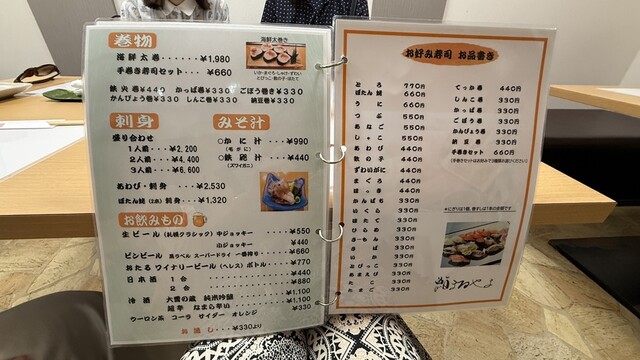 巻物
海鮮太巻・・・・・・¥1,980
手巻寿司セット・・・¥660
鉄火巻¥440 かっぱ巻¥330 ごぼう巻き¥330
かんぴょう巻¥330 しんこ巻¥330 納豆巻¥330
海鮮太巻き
刺身
盛り合わせ
1人前・・・¥2,200
2人前・・・¥4,400
3人前・・・¥6,600
あわび・刺身・・・¥2,530
ぼたん海老(2本)刺身・・・¥1,320
みそ汁
○かに汁・・・¥990
(毛がに)
○鉄砲汁・・・¥440
(ズワイガニ)
お飲みもの
生ビール(札幌クラシック)中ジョッキー・・・¥550
小ジョッキー・・・¥440
ビンビール 黒ラベル スーパードライ 一番搾り・・・¥660
おたる ワイナリービール(ヘレス)ボトル・・・¥770
日本酒 1合・・・¥440
2合・・・¥880
冷酒 大雪の蔵 純米吟醸・・・¥1,100
¥1,100
ウーロン茶 コーラ サイダー オレンジ ¥330
お通し・・・¥330より
お好み寿司 お品書き
とろ 770円
ぼたん海老 660円
うに 660円
つぶ 550円
あなご 550円
しゃこ 550円
あわび 440円
数の子 440円
ずわいがに 440円
まぐろ 440円
ほっき 440円
かんぱち 330円
いくら 330円
ほたて 330円
ひらめ 330円
さーもん 330円
たこ 330円
いか 330円
とびっこ 330円
あまえび 330円
たまご 330円
てっか巻 440円
しんこ巻 330円
かっぱ巻 330円
ごぼう巻 330円
かんぴょう巻 330円
納豆巻 330円
手巻セット 660円
(手巻きセットはお好みで3種類お選びください)